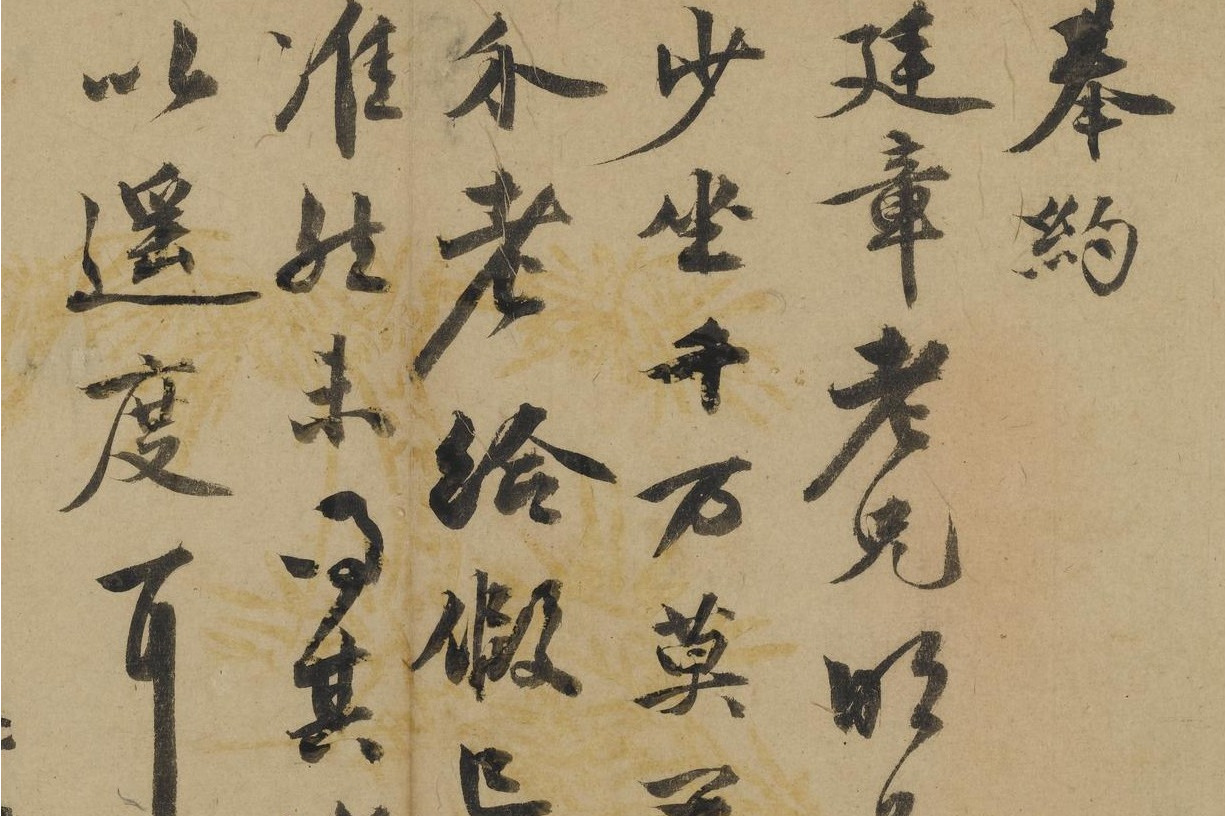 奉約
廷章老兄明
少坐千万莫
介老給假已
准然未得其
以遥度耳